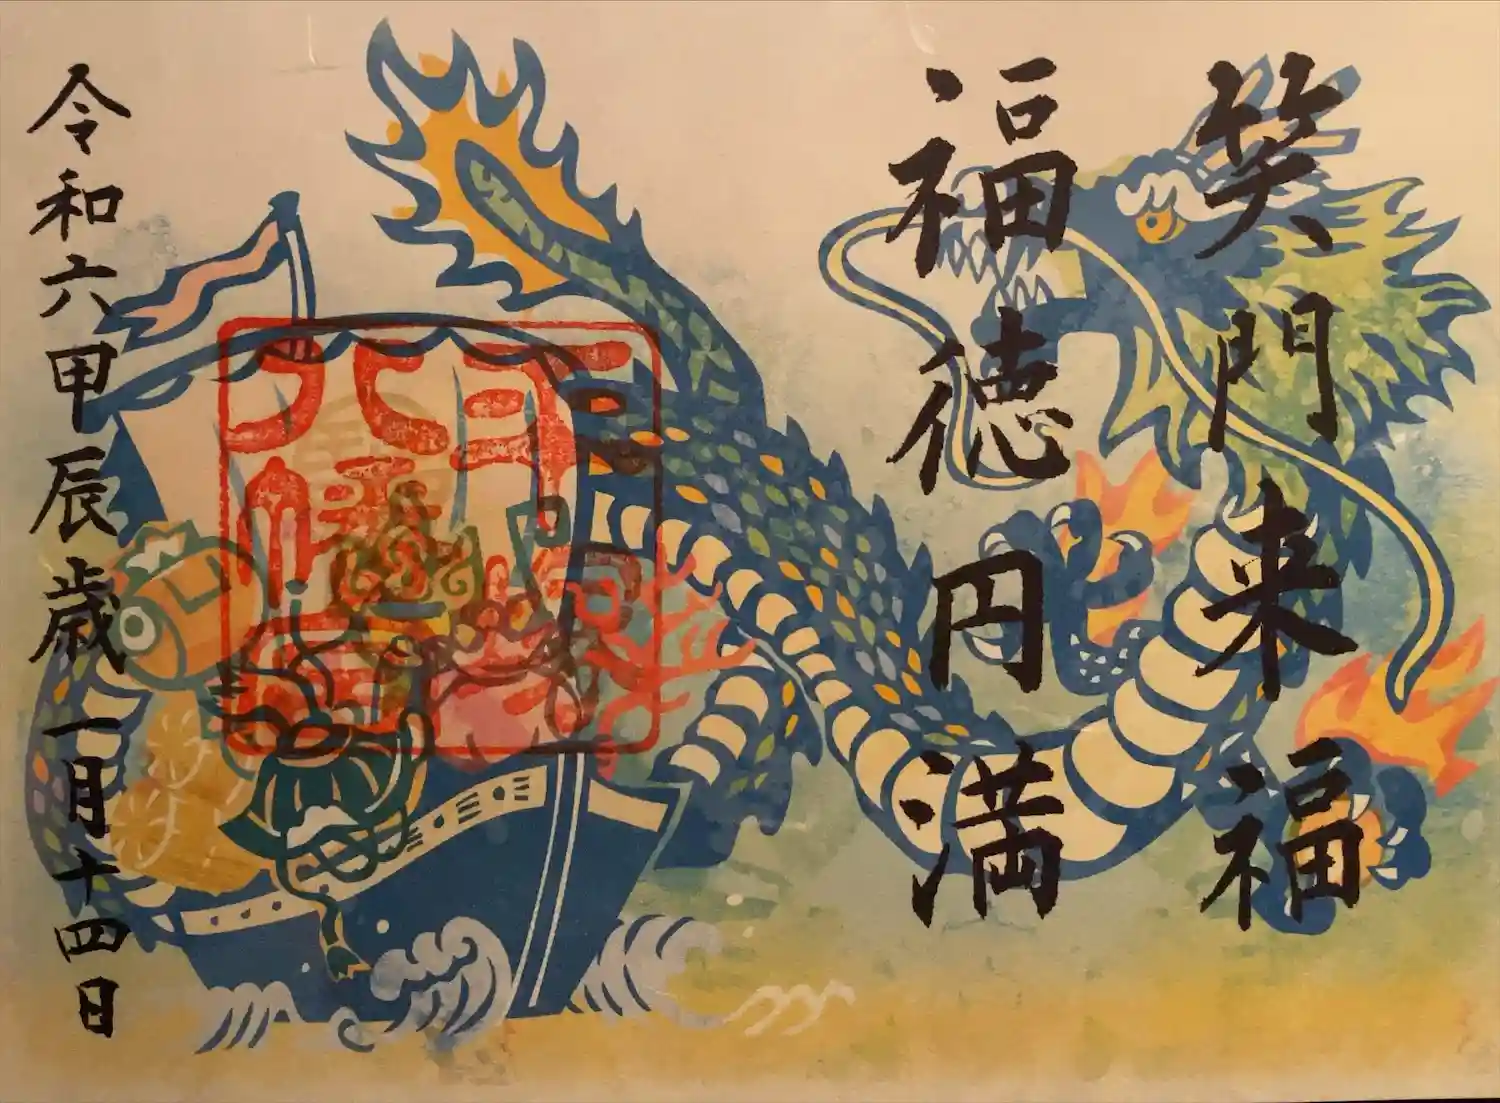 笑門来福
福徳円満
令和六甲辰歳一月十四日